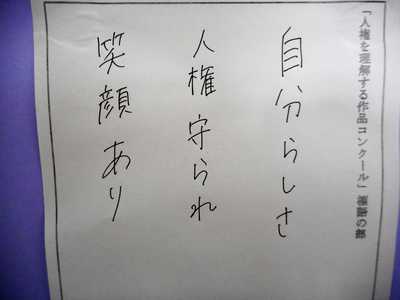 「人権を理解する作品コンクール」標語の部
自分らしさ
人権守られ
笑顔あり